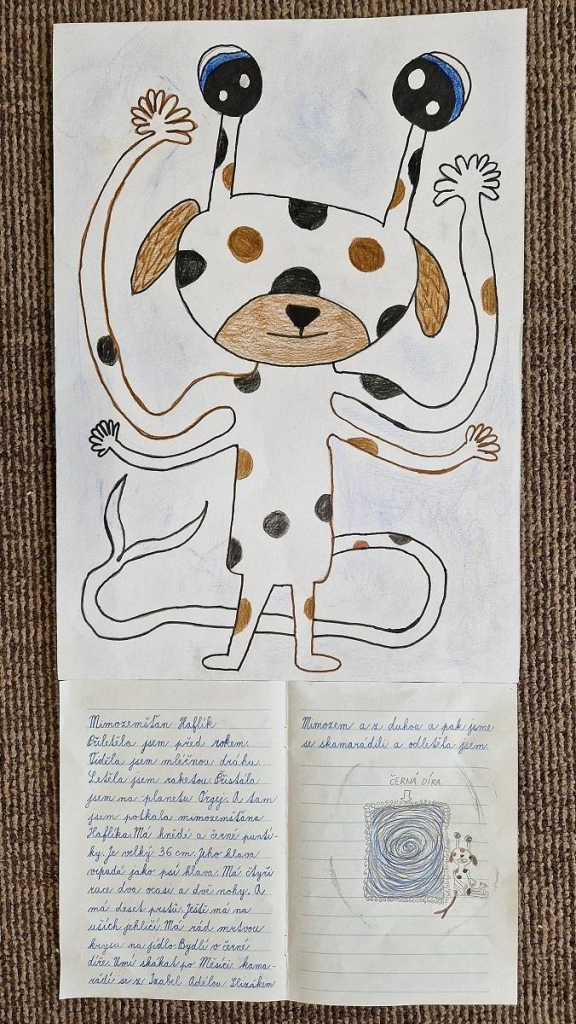 Mimozemšťan Haflík
Přiletěla jsem před rokem.
Viděla jsem mléčnou dráhu.
Letěla jsem raketou. Přistála
jsem na planetu Orgej. A tam
jsem potkala mimozemšťana
Haflíka. Má hnědé a černé puntí-
ky. Je velký 36 cm. Jeho hlava
vypadá jako psí hlava. Má čtyři
ruce dva ocasi a dvě nohy. A
má deset prstů. Ještě má na
uších jehličí. Má rád mrtvou
krysu na jídlo. Bydlí v černé
díře. Umí skákat po Měsíci. kama-
rádí se z Izabel Adélou Slizákem
Mimozem a z duhou a pak jsme
se skamarádili a odletěla jsem.
ČERNÁ DÍRA